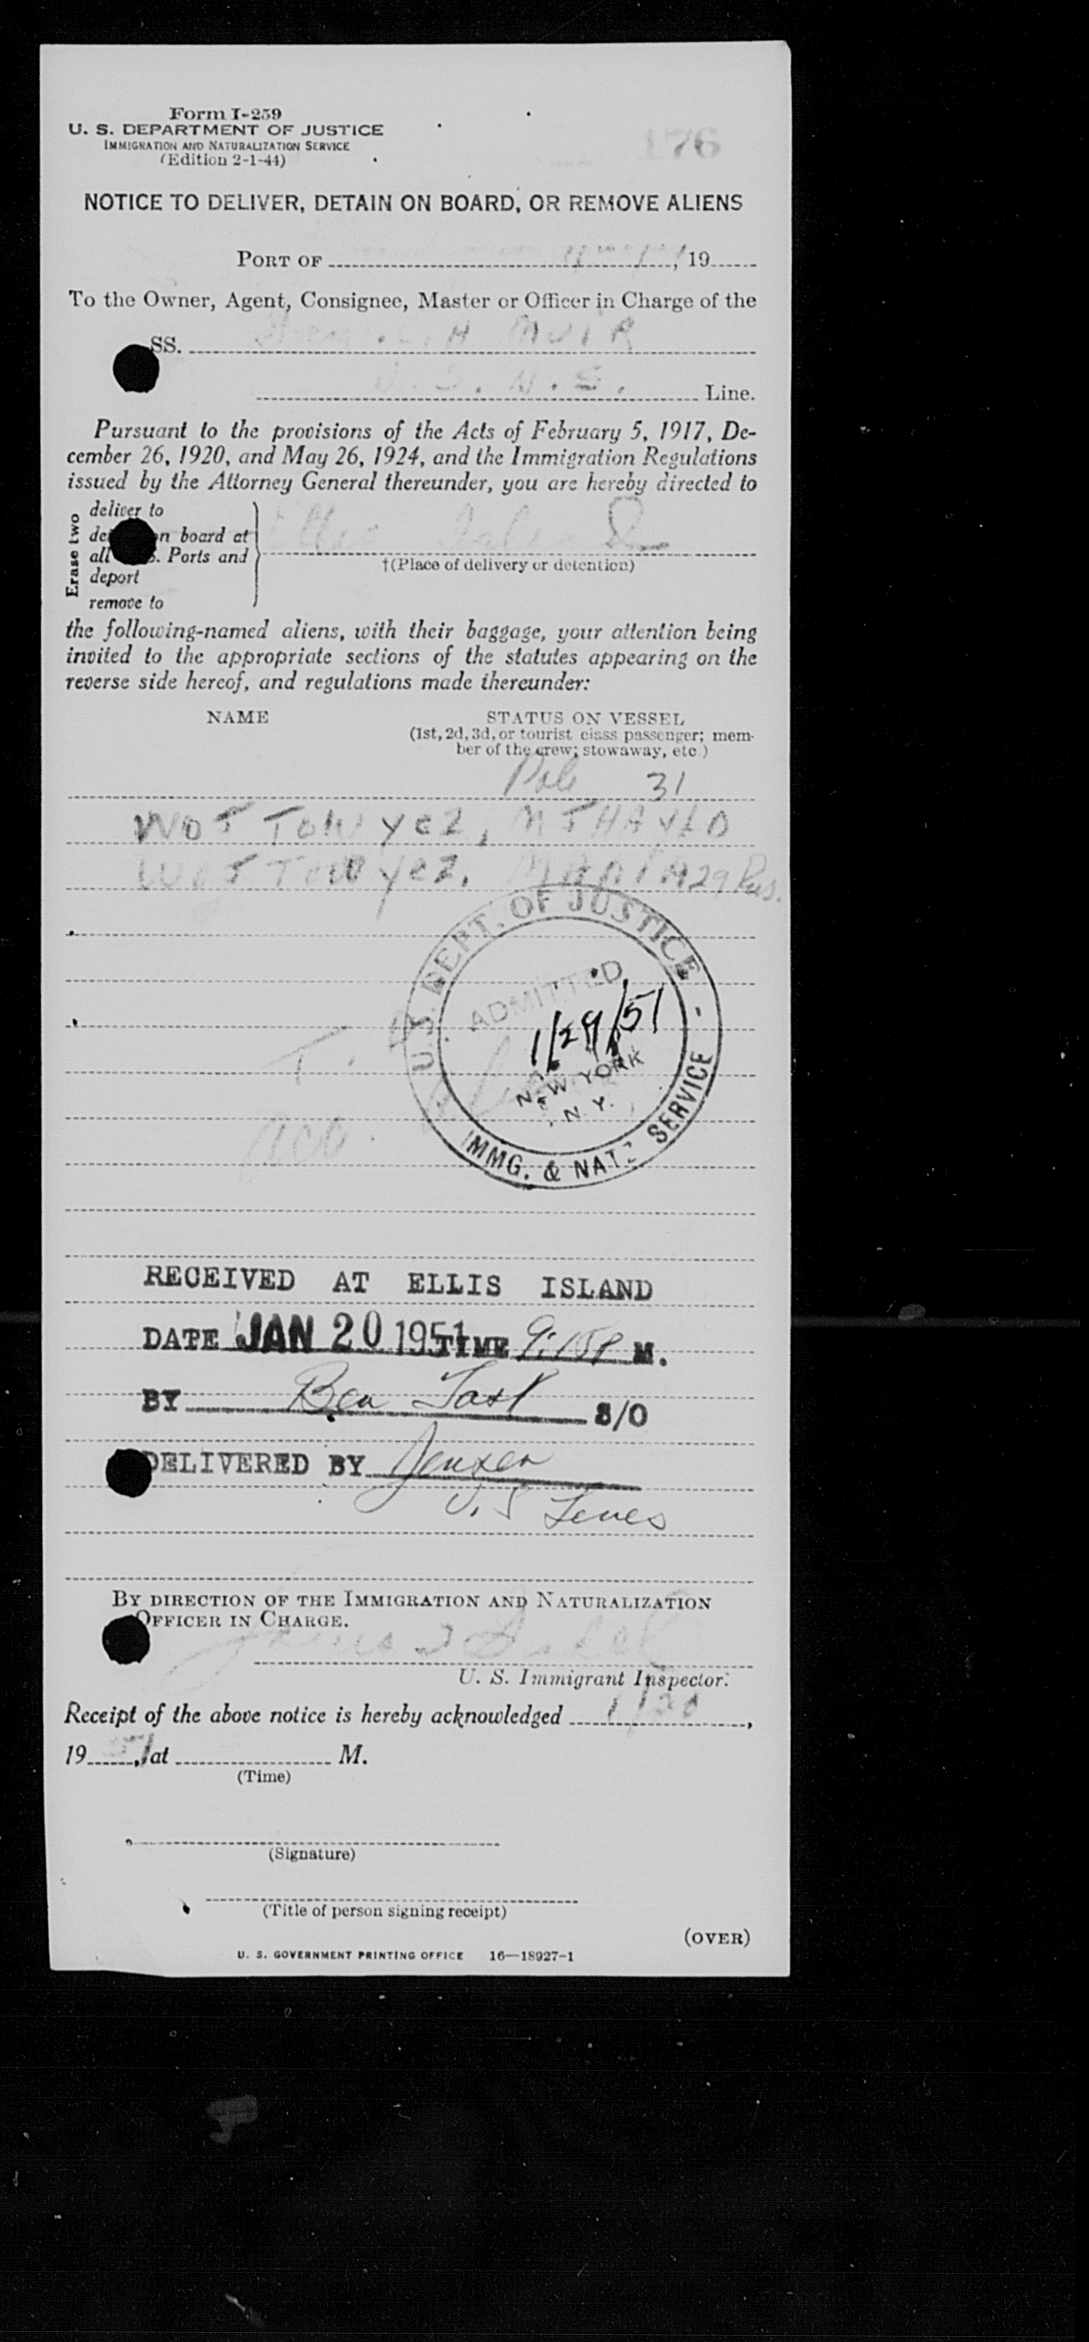 Form I-259
U. S. DEPARTMENT OF JUSTICE
IMMIGRATION AND NATURALIZATION SERVICE
(Edition 2-1-44)
176
NOTICE TO DELIVER, DETAIN ON BOARD, OR REMOVE ALIENS
PORT OF , 19
To the Owner, Agent, Consignee, Master or Officer in Charge of the
SS. H MUIR
U. S. N. S. Line.
Pursuant to the provisions of the Acts of February 5, 1917, De-
cember 26, 1920, and May 26, 1924, and the Immigration Regulations
issued by the Attorney General thereunder, you are hereby directed to
Erase two
deliver to
n board at
all S. Ports and
deport
remove to
Ellis Island
†(Place of delivery or detention)
the following-named aliens, with their baggage, your attention being
invited to the appropriate sections of the statutes appearing on the
reverse side hereof, and regulations made thereunder:
NAME STATUS ON VESSEL
(1st, 2d, 3d, or tourist class passenger; mem-
ber of the crew; stowaway, etc.)
Pole 31
WOJTOWYCZ, MJHAYLO
WOJTOWYCZ, MARIA 29 Rus.
U.S. DEPT. OF JUSTICE -
ADMITTED
1/29/51
NEW YORK
N. Y.
IMMG. & NATZ SERVICE
RECEIVED AT ELLIS ISLAND
DATE JAN 20 1951 TIME 9:15P M.
BY Ben S/O
DELIVERED BY Jensen
U. S Lines
BY DIRECTION OF THE IMMIGRATION AND NATURALIZATION
OFFICER IN CHARGE.
U. S. Immigrant Inspector.
Receipt of the above notice is hereby acknowledged 1/20,
19 51, at M.
(Time)
(Signature)
(Title of person signing receipt)
(OVER)
U. S. GOVERNMENT PRINTING OFFICE 16—18927-1